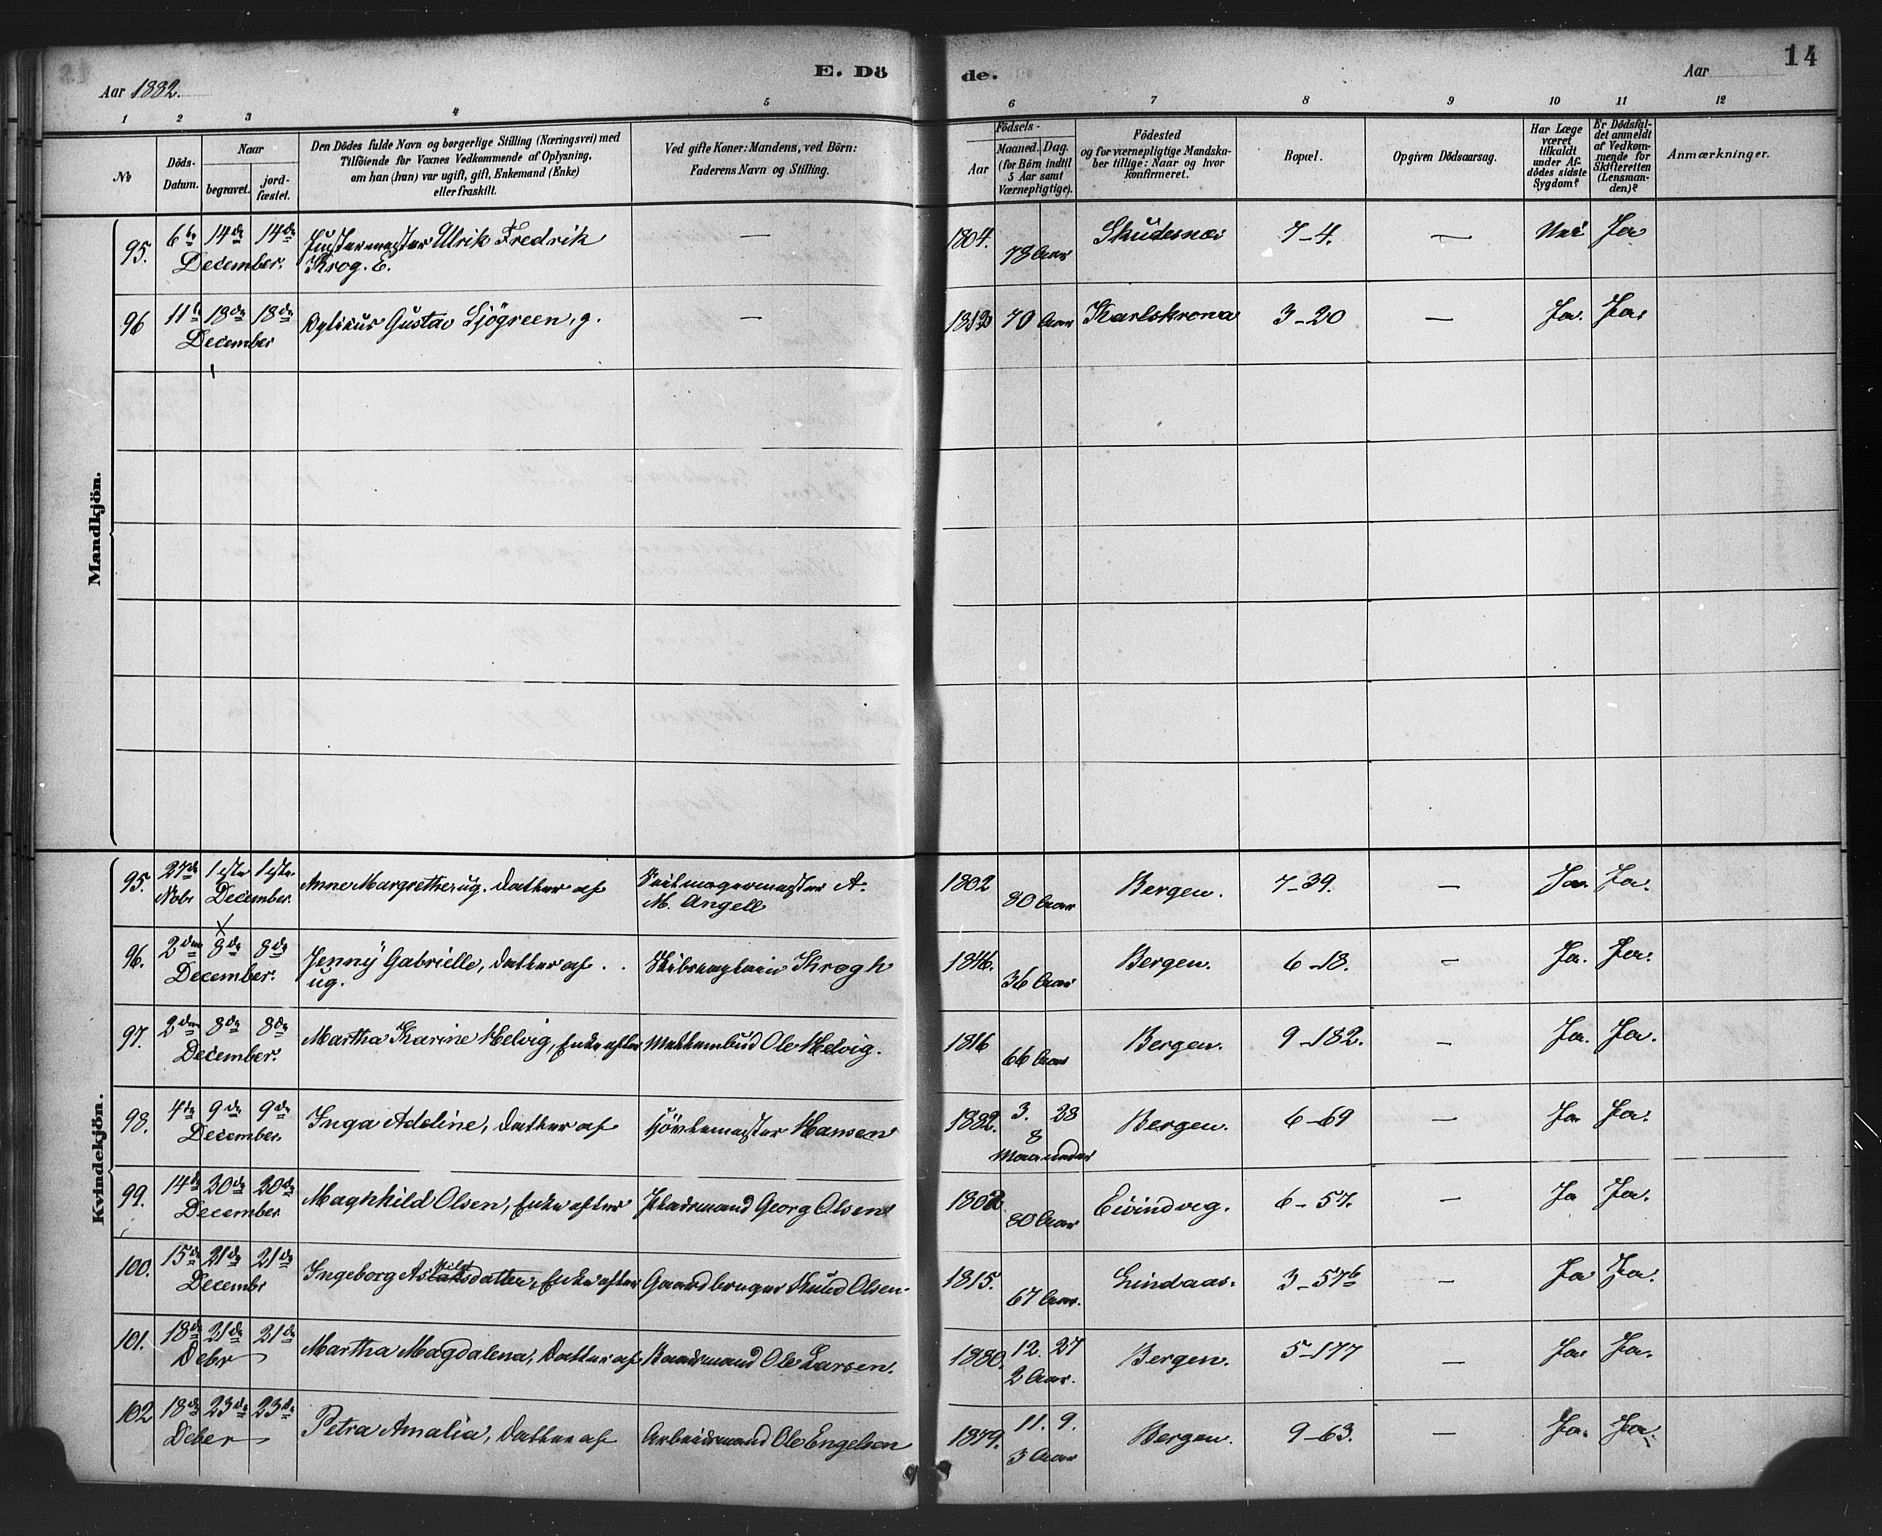 E. Döde.
14
Aar 1882.
Aar
1 2 3 4 5 6 7 8 9 10 11 12
No
Döds-Datum.
Naar
begravet.
jordfæstet.
Den Dödes fulde Navn og borgerlige Stilling (Næringsvei) med
Tilföiende for Voxnes Vedkommende af Oplysning,
om han (hun) var ugift, gift, Enkemand (Enke)
eller fraskilt.
Ved gifte Koner: Mandens, ved Börn:
Faderens Navn og Stilling.
Födsels-
Aar
Maaned. Dag.
(for Börn indtil
5 Aar samt
Værnepligtige).
Födested
og for værnepligtige Mandska-
ber tillige: Naar og hvor
konfirmeret.
Bopæl.
Opgiven Dödsaarsag.
Har Læge
været
tilkaldt
under Af-
dödes sidste
Sygdom?
Er Dödsfal-
det anmeldt
af Vedkom-
mende for
Skifteretten
(Lensman-
den)?
Anmærkninger.
Mandkjön.
95. 6te 14de 14de December. Ulrik Fredrik Krog. E. — 1804. 78 Aar Skudesnæs 7-4. — Nei Ja
96 11te 18de 18de December Gustav Sjögreen, g. — 1812 70 Aar Karlskrona 3-20 — Ja. Ja.
Kvindekjön.
95. 27de Nobr 1ste 1ste December. Anne Margrethe, ug. Datter af A. M. Angell 1802 80 Aar Bergen. 7-39. — Ja. Ja.
96. 2den 8de 8de December. Jenny Gabrielle, Datter af ug. Skibscaptain Krogh 1846. 36 Aar Bergen. 6-18. — Ja. Ja.
97. 2den 8de 8de December. Martha Karine Helvig, Enke efter Ole Helvig. 1816 66 Aar Bergen. 9-182. — Ja. Ja.
98. 4de 9de 9de December. Inga Adeline, Datter af Hansen 1882. 3. 28 8 Maaneder Bergen. 6-69 — Ja. Ja.
99. 14de 20de 20de December Magnhild Olsen, Enke efter Pladsmand Georg Olsen 1802. 80 Aar Eivindvig. 6-57. — Ja Ja.
100. 15de 21de 21de December Ingeborg Enke efter Gaardbruger Knud Olsen. 1815. 67 Aar. Lindaas. 3-57b — Ja Ja.
101. 18de 21de 21de Debr Martha Magdalena, Datter af Baadsmand Ole Larsen. 1880. 12. 27 2 Aar. Bergen. 5-177 — Ja. Ja.
102 18de 23de 23de Deber Petra Amalia, Datter af Arbeidsmand Ole Engelsen 1879. 11. 9. 3 Aar Bergen. 9-63. — Ja. Ja.